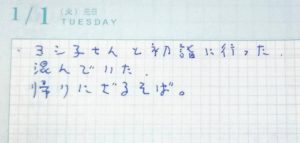 1/1 (火) 元日
TUESDAY
・ヨシ子さんと初詣に行った.
混んでいた.
帰りにざるそば。